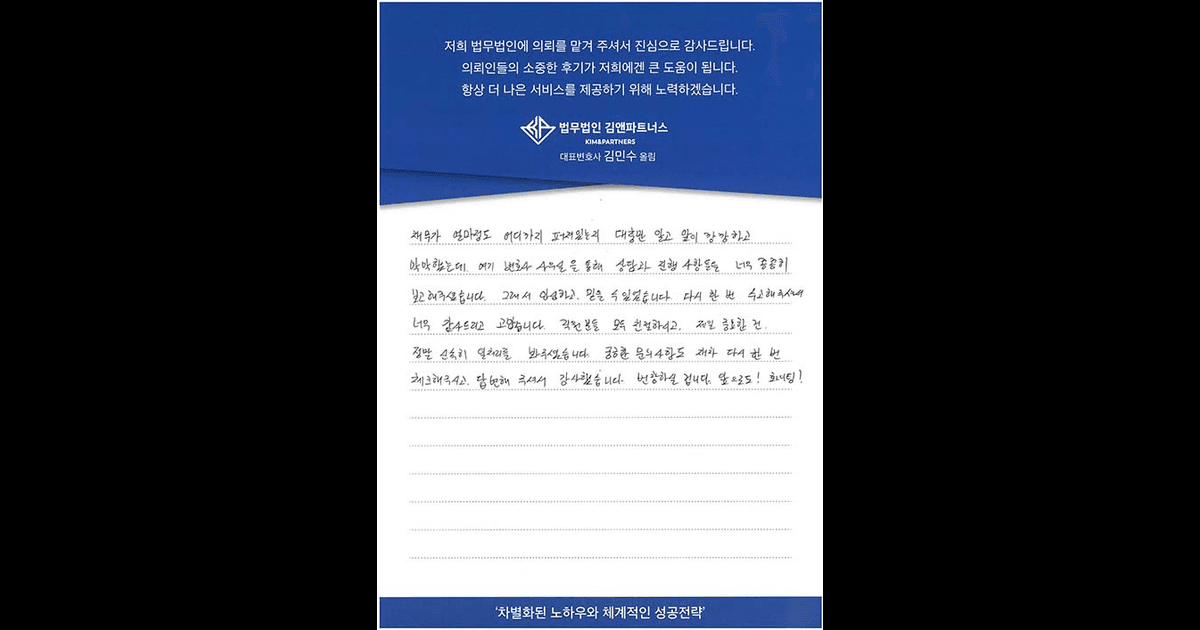 저희 법무법인에 의뢰를 맡겨 주셔서 진심으로 감사드립니다.
의뢰인들의 소중한 후기가 저희에겐 큰 도움이 됩니다.
항상 더 나은 서비스를 제공하기 위해 노력하겠습니다.
법무법인 김앤파트너스
KIM&PARTNERS
대표변호사 김민수 올림
채무가 얼마정도 어디까지 퍼져있는지 대충만 알고 앞이 깜깜하고
막막했는데, 여기 변호사 사무실을 통해 상담과 진행 사항들을 너무 꼼꼼히
보고해주셨습니다. 그래서 안심하고, 믿을 수 있었습니다. 다시 한 번 수고해주셔서
너무 감사드리고 고맙습니다. 직원분들 모두 친절하시고, 제일 중요한 건,
정말 신속히 일처리를 봐주셨습니다. 궁금한 문의사항도 재차 다시 한 번
체크해주시고, 답변해 주셔서 감사했습니다. 번창하실 겁니다. 앞으로도! 화이팅!
'차별화된 노하우와 체계적인 성공전략'